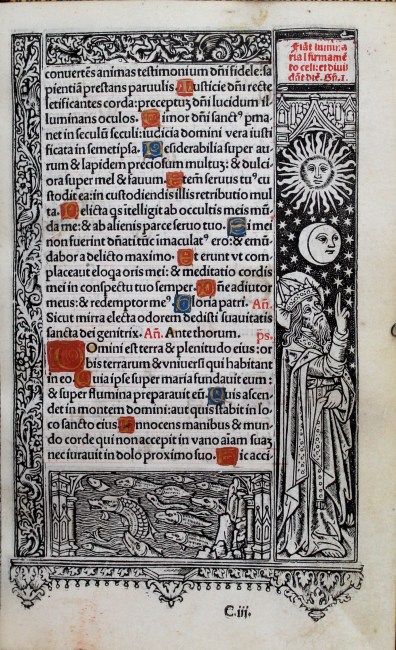 Fiãt lumina
ria ĩ firmamẽ
to celi: et divi
dãt diẽ. Gñ. I
convertẽs animas testimonium dñi fidele: sa
pientiã prestans parvulis. Iusticie dñi recte
letificantes corda: preceptuʒ dñi lucidum il
luminans oculos. Timor dñi sanctꝰ pma
net in seculũ seculi: iudicia domini vera iusti
ficata in semetipsa. Desiderabilia super au
rum & lapidem preciosum multuʒ: & dulci
ora super mel & fauum. Etem̃ servus tuꝰ cu
stodit ea: in custodiendis illis retributio mul
ta. Delicta qs itelligit ab occultis meis mũ
da me: & ab alienis parce servo tuo. Si mei
non fuerint dñati tũc imaculatꝰ ero: & emũ
dabor a delicto maximo. Et erunt vt com
placeant eloqa oris mei: & meditatio cordis
mei in conspectu tuo semper. Dñe adiutor
meus: & redemptor meꝰ. Gloria patri. Añ.
Sicut mirra electa odorem dedisti suavitatis
sancta dei genitrix. Añ. Ante thorum. ps.
DOmini est terra & plenitudo eius: or
bis terrarum & vniversi qui habitant
in eo. Quia ipse super maria fundavit eum:
& super flumina preparavit eũ. Quis ascen
det in montem domini: aut quis stabit in lo
co sancto eius. Innocens manibus & mun
do corde qui non accepit in vano aĩam suaʒ
nec iuravit in dolo proximo suo. Hic acci
C. iii.